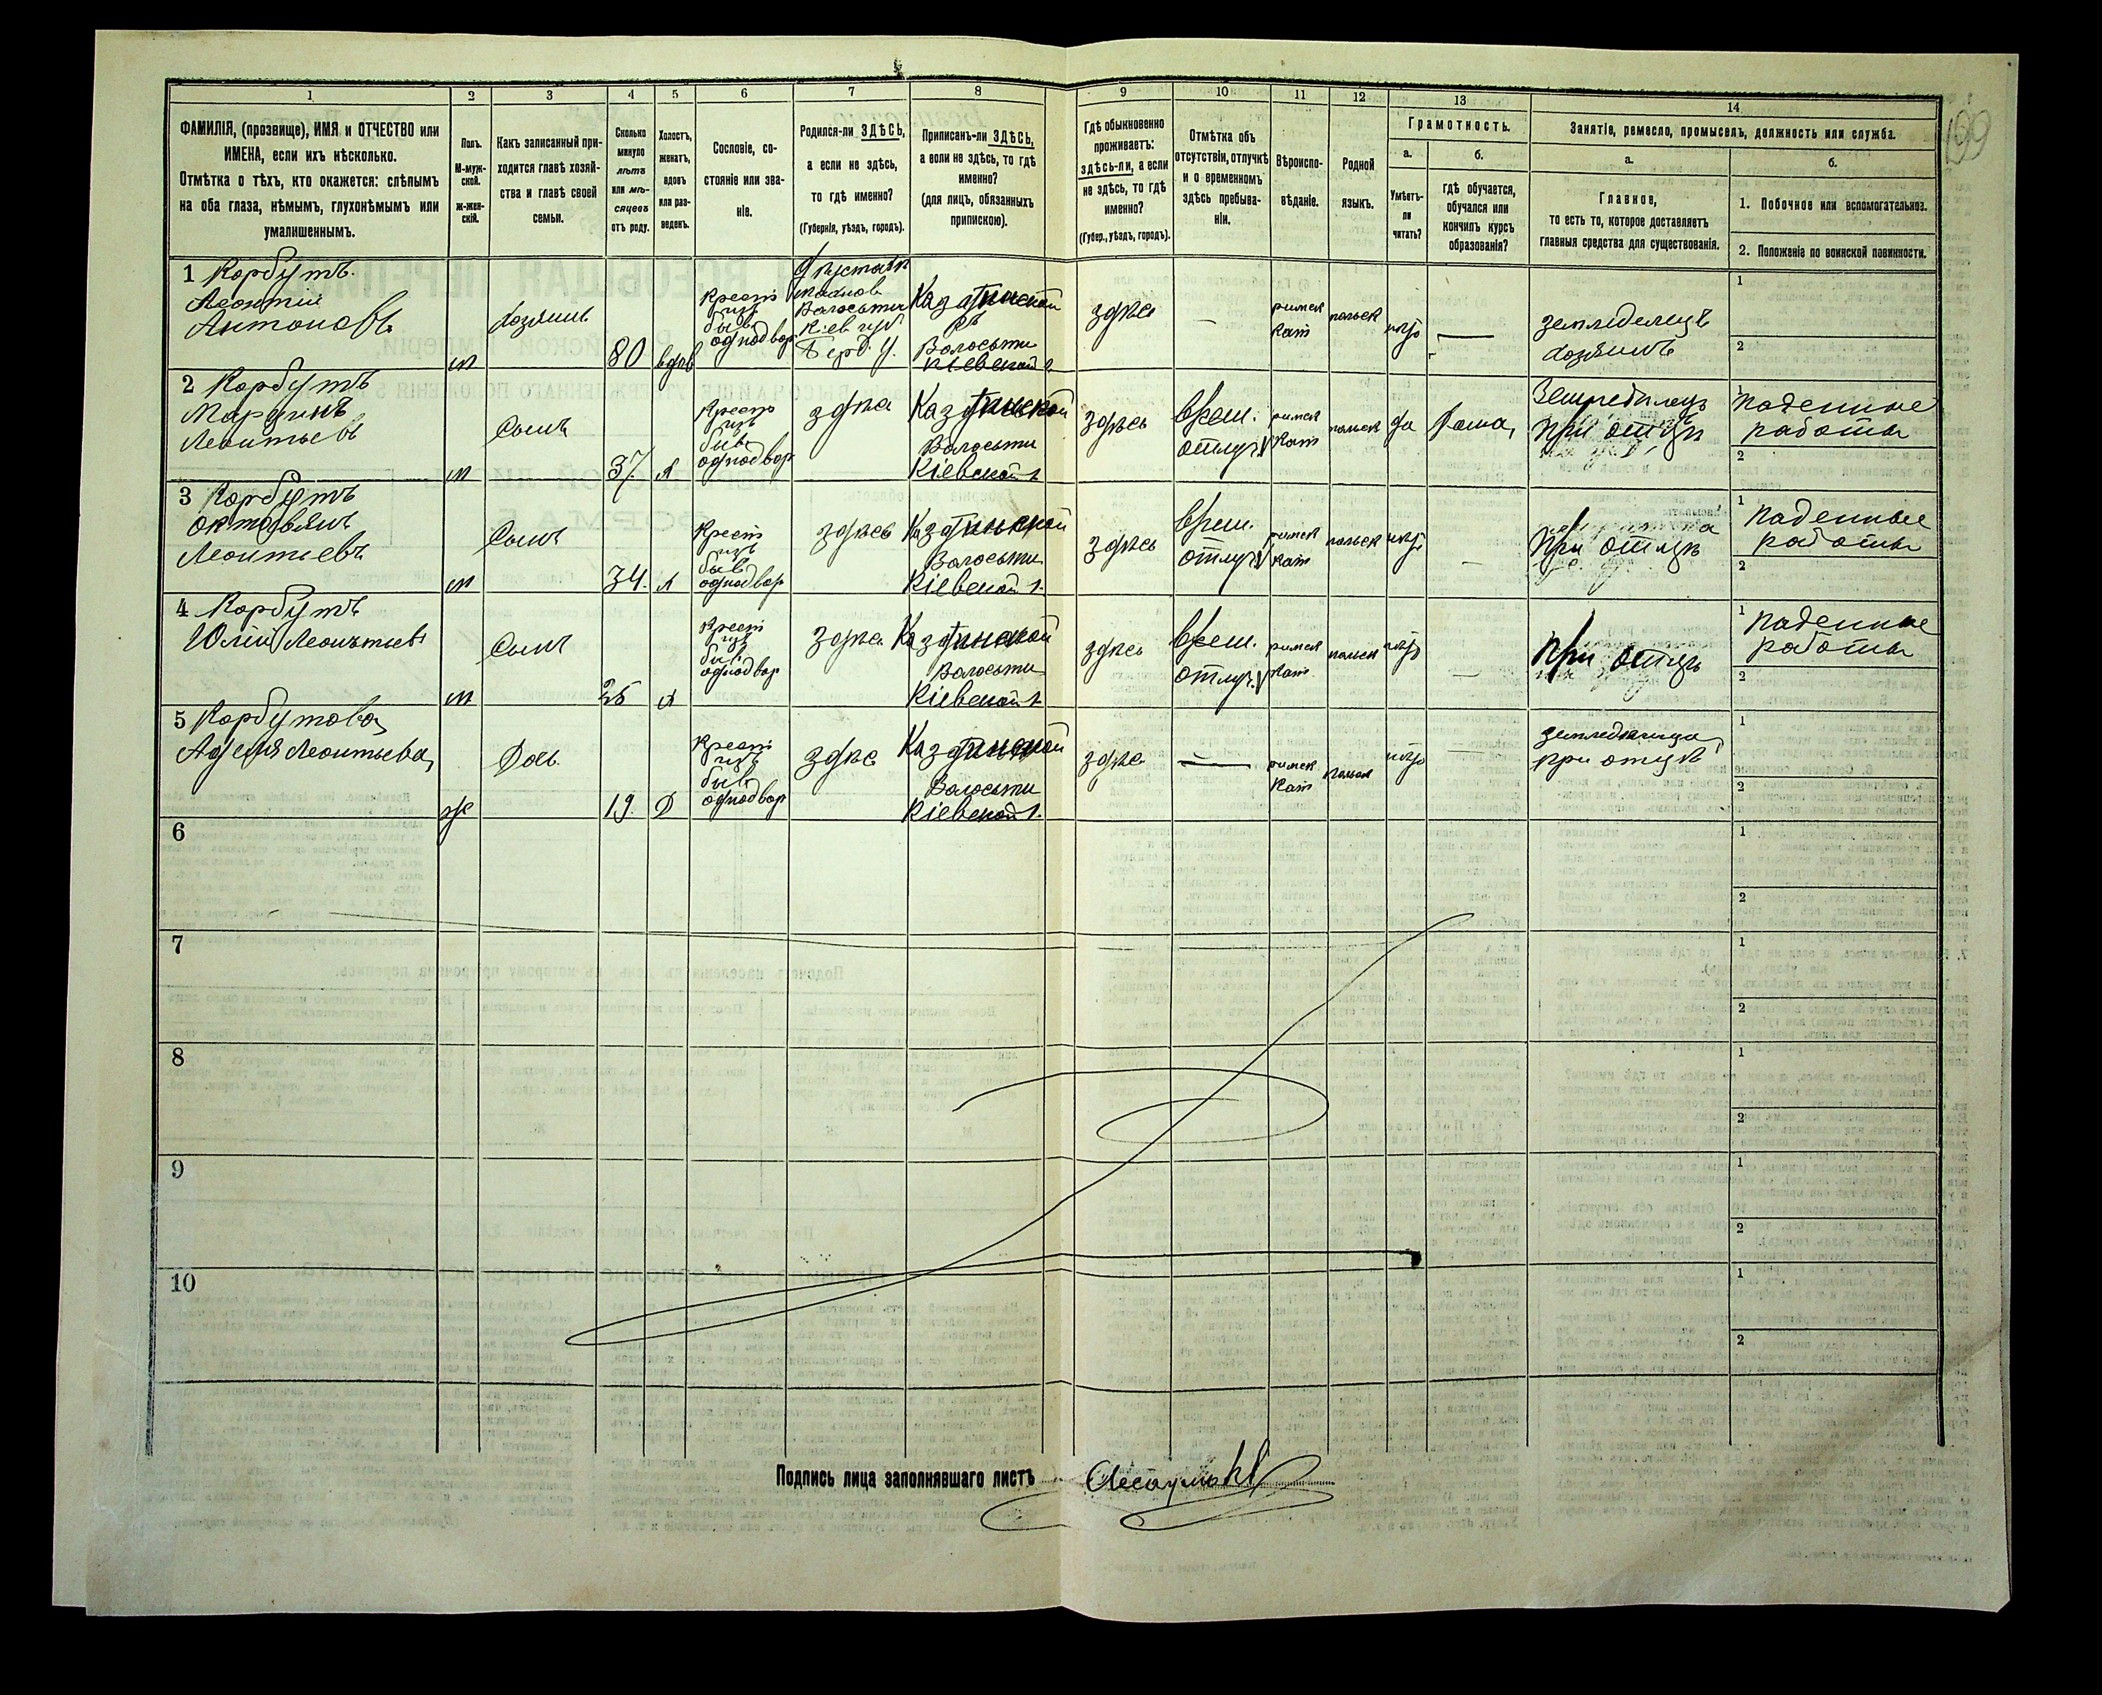 199
1
2
3
4
5
6
7
8
9
10
11
12
13
14
ФАМИЛІЯ, (прозвище), ИМЯ и ОТЧЕСТВО или
ИМЕНА, если ихъ нѣсколько.
Отмѣтка о тѣхъ, кто окажется: слѣпымъ
на оба глаза, нѣмымъ, глухонѣмымъ или
умалишеннымъ.
Полъ.
М-муж-
ской.
ж-жен-
скій.
Какъ записанный при-
ходится главѣ хозяй-
ства и главѣ своей
семьи.
Сколько
минуло
лѣтъ
или мѣ-
сяцевъ
отъ роду.
Холостъ,
женатъ,
вдовъ
или раз-
веденъ.
Сословіе, со-
стояніе или зва-
ніе.
Родился-ли ЗДѢСЬ,
а если не здѣсь,
то гдѣ именно?
(Губернія, уѣздъ, городъ).
Приписанъ-ли ЗДѢСЬ,
а если не здѣсь, то гдѣ
именно?
(для лицъ, обязанныхъ
припискою).
Гдѣ обыкновенно
проживаетъ:
здѣсь-ли, а если
не здѣсь, то гдѣ
именно?
(Губер., уѣздъ, городъ).
Отмѣтка объ
отсутствіи, отлучкѣ
и о временномъ
здѣсь пребыва-
ніи.
Вѣроиспо-
вѣданіе.
Родной
языкъ.
Грамотность.
а.
Умѣетъ-
ли
читать?
б.
гдѣ обучается,
обучался или
кончилъ курсъ
образованія?
Занятіе, ремесло, промыселъ, должность или служба.
а.
Главное,
то есть то, которое доставляетъ
главныя средства для существованія.
б.
1. Побочное или вспомогательное.
2. Положеніе по воинской повинности.
1 Корбутъ
Леонтій
Антоновъ
м
хозяинъ
80
вдов
Крест
изъ
быв
однодвор
Волости
Кіев губ
Берд. у.
Казатинской
Волости
Кіевской г
здѣсь
—
римск
кат
польск
нѣтъ
—
земледелецъ
хозяинъ
1
2
2 Корбутъ
Марцинъ
Леонтьевъ
м
Сынъ
37
х
Крест
изъ
быв
однодвор
здѣсь
Казатинской
Волости
Кіевской г.
здѣсь
врем.
отлуч.
римск
кат
польск
да
Дома
Земледелецъ
при отцѣ
1 Паденные
работы
2
3 Корбутъ
Октавьянъ
Леонтьевъ
м
Сынъ
34
х
Крест
изъ
быв
однодвор
здѣсь
Казатинской
Волости
Кіевской г.
здѣсь
врем.
отлуч.
римск
кат
польск
нѣтъ
—
При отцѣ
1 Паденные
работы
2
4 Корбутъ
Юлій Леонтьевъ
м
Сынъ
25
х
Крест
изъ
быв
однодвор
здѣсь
Казатинской
Волости
Кіевской г.
здѣсь
врем.
отлуч.
римск
кат
польск
нѣтъ
—
при отцѣ
1 Паденные
работы
2
5 Корбутова
Аделя Леонтьева
ж
Дочь
19.
Д
Крест
изъ
быв
однодвор
здѣсь
Казатинской
Волости
Кіевской г.
здѣсь
—
римск
кат
польск
нѣтъ
—
при отцѣ
1
2
6
1
2
7
1
2
8
1
2
9
1
2
10
1
2
Подпись лица заполнявшаго листъ